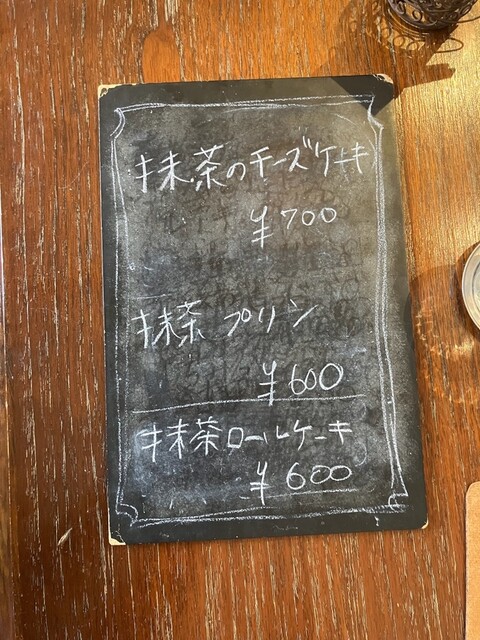 抹茶のチーズケーキ
¥700
抹茶 プリン
¥600
抹茶ロールケーキ
¥600